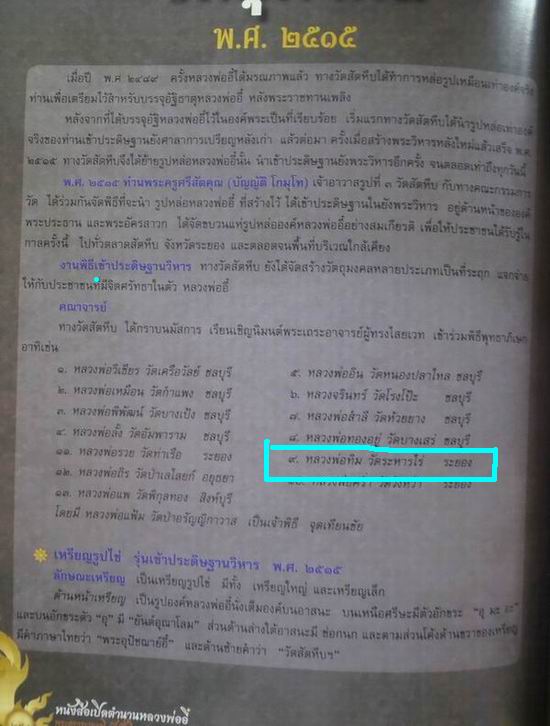 พ.ศ. ๒๕๑๕
เมื่อปี พ.ศ ๒๔๘๙ ครั้งหลวงพ่ออี๋ได้มรณภาพแล้ว ทางวัดสัตหีบได้ทำการหล่อรูปเหมือนเท่าองค์จริง
ท่านเพื่อเตรียมไว้สำหรับบรรจุอัฐิธาตุหลวงพ่ออี๋ หลังพระราชทานเพลิง
หลังจากที่ได้บรรจุอัฐิหลวงพ่ออี๋ไว้ในองค์พระเป็นที่เรียบร้อย เริ่มแรกทางวัดสัตหีบได้นำรูปหล่อเท่าองค์
จริงของท่านเข้าประดิษฐานยังศาลาการเปรียญหลังเก่า แล้วต่อมา ครั้งเมื่อสร้างพระวิหารหลังใหม่แล้วเสร็จ พ.ศ.
๒๕๑๕ ทางวัดสัตหีบจึงได้ย้ายรูปหล่อหลวงพ่ออี๋นั้น นำเข้าประดิษฐานยังพระวิหารอีกครั้ง จนตลอดเท่าถึงทุกวันนี้
พ.ศ. ๒๕๑๕ ท่านพระครูศรีสัตคุณ (บัญญัติ โกมุโท) เจ้าอาวาสรูปที่ ๓ วัดสัตหีบ กับทางคณะกรรมการ
วัด ได้ร่วมกันจัดพิธีที่จะนำ รูปหล่อหลวงพ่ออี๋ ที่สร้างไว้ ได้เข้าประดิษฐานในยังพระวิหาร อยู่ด้านหน้าขององค์
พระประธาน และพระอัครสาวก ได้จัดขบวนแห่รูปหล่อองค์หลวงพ่ออี๋อย่างสมเกียรติ เพื่อให้ประชาชนได้รับรู้ใน
กาลครั้งนี้ ไปทั่วตลาดสัตหีบ จังหวัดระยอง และตลอดจนพื้นที่บริเวณใกล้เคียง
งานพิธีเข้าประดิษฐานวิหาร ทางวัดสัตหีบ ยังได้จัดสร้างวัตถุมงคลหลายประเภทเป็นที่ระฤก แจกจ่าย
ให้กับประชาชนที่มีจิตศรัทธาในตัว หลวงพ่ออี๋
คณาจารย์
ทางวัดสัตหีบ ได้กราบนมัสการ เรียนเชิญนิมนต์พระเถระอาจารย์ผู้ทรงไสยเวท เข้าร่วมพิธีพุทธาภิเษก
อาทิเช่น
๑. หลวงพ่อวิเชียร วัดเครือวัลย์ ชลบุรี
๒. หลวงพ่อเหมือน วัดกำแพง ชลบุรี
๓. หลวงพ่อพิพัฒน์ วัดบางเป้ง ชลบุรี
๔. หลวงพ่อลั้ง วัดอัมพาราม ชลบุรี
๑๑. หลวงพ่อรวย วัดท่าเรือ ระยอง
๑๒. หลวงพ่อถิร วัดป่าเลไลยก์ อยุธยา
๑๓. หลวงพ่อแพ วัดพิกุลทอง สิงห์บุรี
๕. หลวงพ่ออิน วัดหนองปลาไหล ชลบุรี
๖. หลวงจรินทร์ วัดโรงโป๊ะ ชลบุรี
๗. หลวงพ่อสำลี วัดห้วยยาง ชลบุรี
๘. หลวงพ่อทองอยู่ วัดบางเสร่ ชลบุรี
๙. หลวงพ่อทิม วัดระหารไร่ ระยอง
๑๐. หลวงพ่อคร่ำ วัดวังหว้า ระยอง
โดยมี หลวงพ่อแฟ้ม วัดป่าอรัญญิกาวาส เป็นเจ้าพิธี จุดเทียนชัย
เหรียญรูปไข่ รุ่นเข้าประดิษฐานวิหาร พ.ศ. ๒๕๑๕
ลักษณะเหรียญ เป็นเหรียญรูปไข่ มีทั้ง เหรียญใหญ่ และเหรียญเล็ก
ด้านหน้าเหรียญ เป็นรูปองค์หลวงพ่ออี๋นั่งเต็มองค์บนอาสนะ บนเหนือศรีษะมีตัวอักขระ "อุ มะ อะ"
และบนอักขระตัว "อุ" มี "ยันต์อุณาโลม" ส่วนด้านล่างใต้อาสนะมี ช่อกนก และตามส่วนโค้งด้านขวาของเหรียญ
มีคำภาษาไทยว่า "พระอุปัชฌาย์อี๋" และด้านซ้ายคำว่า "วัดสัตหีบฯ"
หนังสือเปิดตำนานหลวงพ่ออี๋